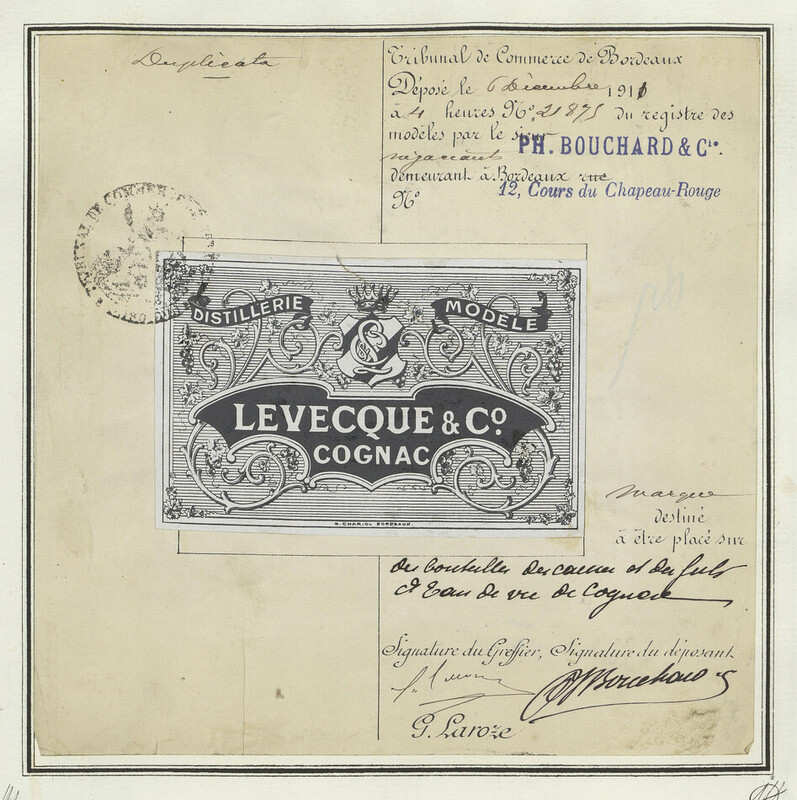 Duplicata
Tribunal de Commerce de Bordeaux
Déposé le 6 Décembre 1911
à 4 heures N° 21875 du registre des
modèles par le sieur
PH. BOUCHARD & Cie.
négociants
demeurant à Bordeaux rue
12, Cours du Chapeau-Rouge
N°
TRIBUNAL DE COMMERCE DE
DISTILLERIE MODÈLE
LEVECQUE & Co.
COGNAC
G. CHARIOL BORDEAUX.
marque
destiné
à être placé sur
des bouteilles des caisses et des futs
d'Eau de vie de Cognac
Signature du Greffier, Signature du déposant
Bouchard
G. Laroze